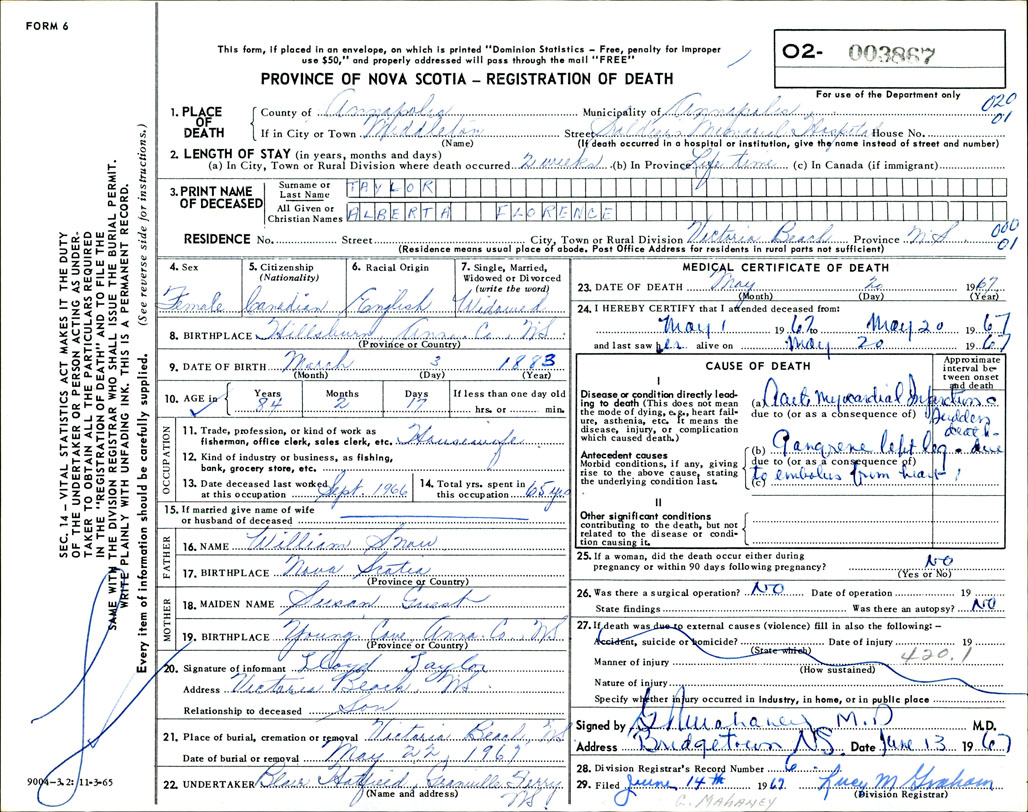 FORM 6
This form, if placed in an envelope, on which is printed "Dominion Statistics – Free, penalty for improper
use $50," and properly addressed will pass through the mail "FREE"
PROVINCE OF NOVA SCOTIA – REGISTRATION OF DEATH
O2- 003867
For use of the Department only
020
01
1. PLACE OF DEATH
County of Annapolis Municipality of Annapolis
If in City or Town Middleton Street Soldiers Memorial Hospital House No.
(Name) (If death occurred in a hospital or institution, give the name instead of street and number)
2. LENGTH OF STAY (in years, months and days)
(a) In City, Town or Rural Division where death occurred 2 weeks (b) In Province Life time (c) In Canada (if immigrant)
3. PRINT NAME OF DECEASED
Surname or Last Name TAYLOR
All Given or Christian Names ALBERTA FLORENCE
RESIDENCE No. Street City, Town or Rural Division Victoria Beach Province N.S.
000
01
(Residence means usual place of abode. Post Office Address for residents in rural parts not sufficient)
4. Sex Female
5. Citizenship (Nationality) Canadian
6. Racial Origin English
7. Single, Married, Widowed or Divorced (write the word) Widowed
8. BIRTHPLACE Hillsburn, Anna. Co. N.S.
(Province or Country)
9. DATE OF BIRTH March 3 1883
(Month) (Day) (Year)
10. AGE in Years 84 Months 2 Days 17 If less than one day old hrs. or min.
OCCUPATION
11. Trade, profession, or kind of work as fisherman, office clerk, sales clerk, etc. Housewife
12. Kind of industry or business, as fishing, bank, grocery store, etc.
13. Date deceased last worked at this occupation Sept. 1966
14. Total yrs. spent in this occupation 65 yrs
15. If married give name of wife or husband of deceased
FATHER
16. NAME William Snow
17. BIRTHPLACE Nova Scotia
(Province or Country)
MOTHER
18. MAIDEN NAME Susan Guest
19. BIRTHPLACE Young Cove Anna. Co. N.S.
(Province or Country)
20. Signature of informant Lloyd Taylor
Address Victoria Beach N.S.
Relationship to deceased son
21. Place of burial, cremation or removal Victoria Beach, N.S.
Date of burial or removal May 22, 1967
22. UNDERTAKER Blair Hatfield, Granville Ferry N.S.
(Name and address)
MEDICAL CERTIFICATE OF DEATH
23. DATE OF DEATH May 20 1967
(Month) (Day) (Year)
24. I HEREBY CERTIFY that I attended deceased from
May 1 1967 to May 20 1967
and last saw her alive on May 20 1967
CAUSE OF DEATH
Approximate interval between onset and death
I
Disease or condition directly leading to death (This does not mean the mode of dying, e.g., heart failure, asthenia, etc. It means the disease, injury, or complication which caused death.)
(a) Acute Myocardial Infarction -
Sudden death -
due to (or as a consequence of)
Antecedent causes
Morbid conditions, if any, giving rise to the above cause, stating the underlying condition last.
(b) Gangrene left leg - due
due to (or as a consequence of)
(c) to embolus from heart
II
Other significant conditions
contributing to the death, but not related to the disease or condition causing it.
25. If a woman, did the death occur either during pregnancy or within 90 days following pregnancy? NO
(Yes or No)
26. Was there a surgical operation? NO Date of operation 19
State findings Was there an autopsy? NO
27. If death was due to external causes (violence) fill in also the following: –
Accident, suicide or homicide? Date of injury 19
(State which) 420.1
Manner of injury
(How sustained)
Nature of injury
Specify whether injury occurred in industry, in home, or in public place
Signed by Mahaney M.D M.D.
Address Bridgetown N.S. Date June 13 1967
28. Division Registrar's Record Number 6
29. Filed June 14th 1967 Lucy M Graham
(Division Registrar)
G. MAHANEY
9004-3.2: 11-3-65
SEC. 14 – VITAL STATISTICS ACT MAKES IT THE DUTY
OF THE UNDERTAKER OR PERSON ACTING AS UNDER-
TAKER TO OBTAIN ALL THE PARTICULARS REQUIRED
IN THE "REGISTRATION OF DEATH" AND TO FILE THE
SAME WITH THE DIVISION REGISTRAR WHO SHALL ISSUE THE BURIAL PERMIT.
WRITE PLAINLY WITH UNFADING INK. THIS IS A PERMANENT RECORD.
Every item of information should be carefully supplied. (See reverse side for instructions.)